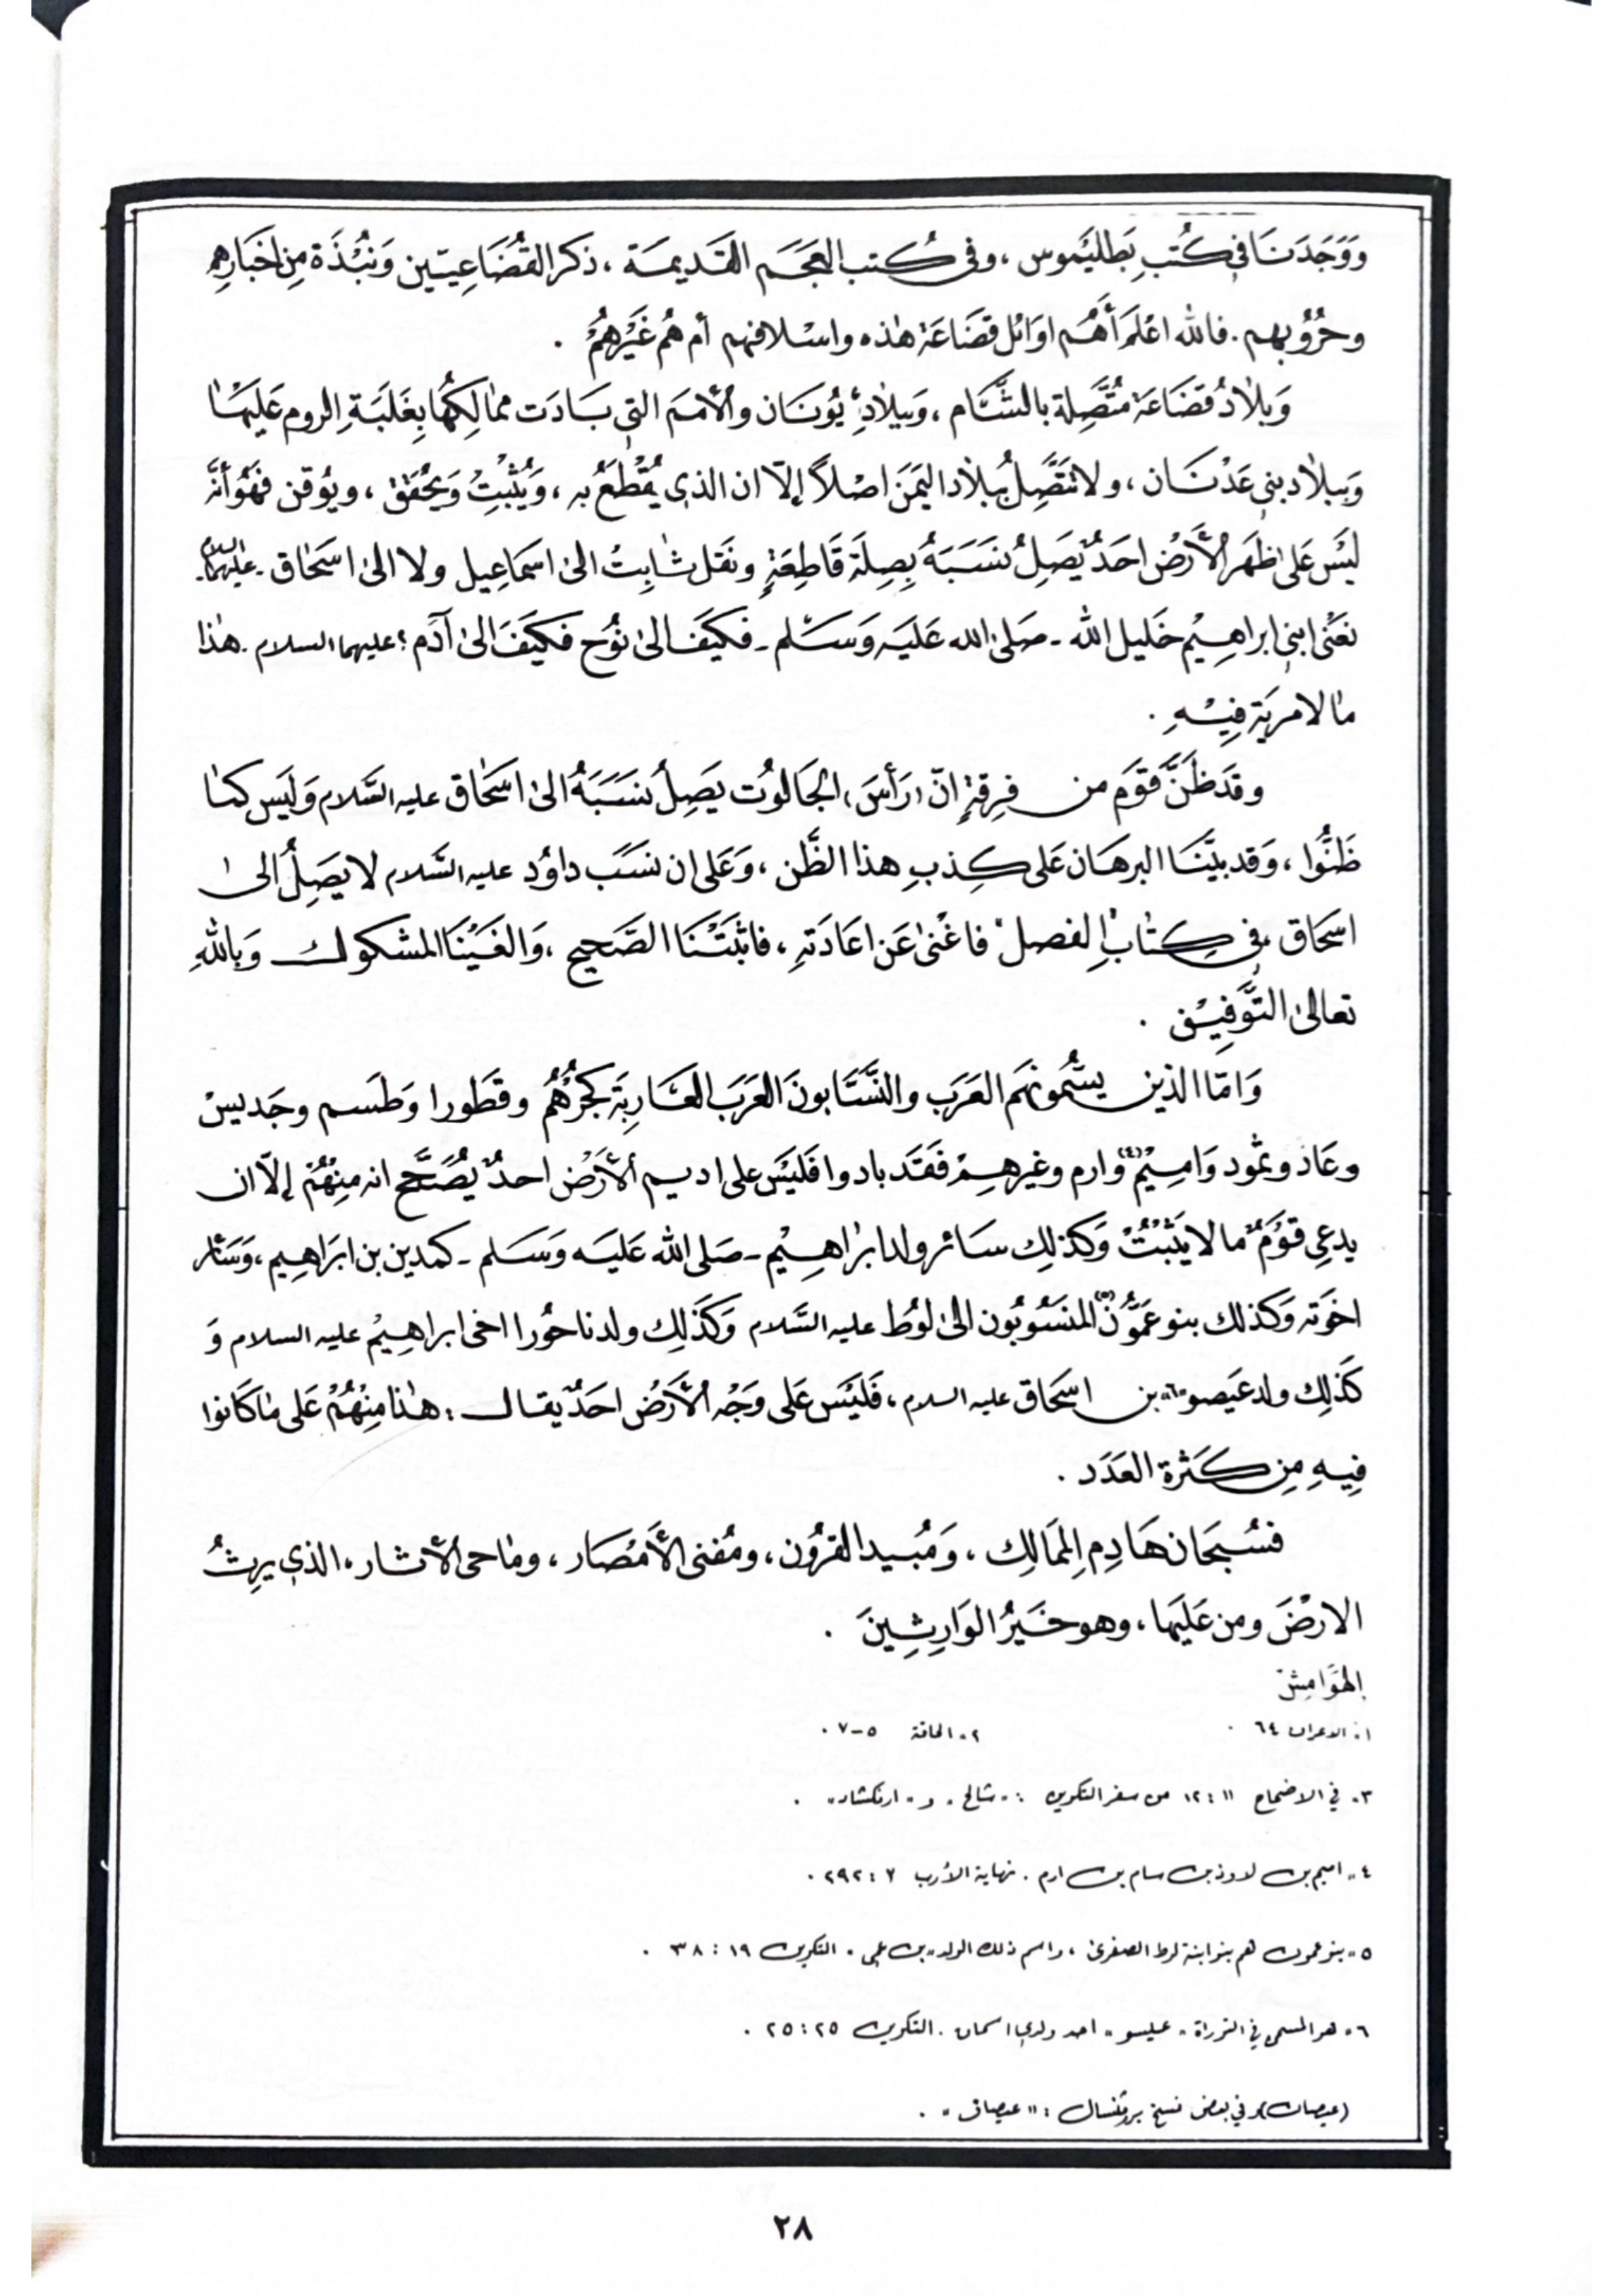 وَوَجَدَنَا في كُتبِ بَطليَموس ، وفى كُتب العَجَم القَديمَة ، ذكر القُضَاعِيّين وَنُبْذَة مِن اخَبَارِهِم
وحرُوُبهم . فالله اعْلَم أَهُم اوَائل قضَاعَة هٰذه واسْلافهم أم هُم غَيْرهُمْ .
وَبلاٰدُ قضَاعَة مُتَّصِلة بالشَّام ، وَببلاٰدِ يُونَان والأُمَم التي بَادَت ممٰالِكهُا بِغَلبَةِ الروم عَليهَا
وَببلاٰد بني عَدْنَان ، ولا تَتَّصِلُ ببلاٰد اليَمَن اصْلاً إلاّ ان الذي يُقْطَعُ به ، وَيُثْبِتُ وَيحُقق ، ويوُقن فهَوُ أنّه
ليَسَ عَلىٰ ظَهَر الأَرْض احَدٌ يَصَلِ نسَبَهُ بِصِلَة قَاطِعَةٍ ونَقل ثٰابِتْ الىٰ اسَمَاعِيل ولا الىٰ اسَحَاق - عليهما السلام -
نعَنْى ابني ابراهِيْم خَليل الله - صَلىٰ الله عَليَه وَسَلم - فكيَفَ الىٰ نوُح فكيَفَ الىٰ آدَم ؛ عليهما السلام . هٰذا
مٰا لا مريَة فِيْهِ .
وقَد ظَنَّ قَوَم من فِرقةٍ انّ ، رَأسَ ، الجَالوُت يَصَلِ نسَبَهُ الىٰ اسَحٰاق عليه السَّلام وَليَس كمٰا
ظَنُّوا ، وَقد بيَّنَا البرهَان عَلى كِذبِ هذا الظَّن ، وَعَلى ان نسَبَ داوُد عليه السَّلام لا يَصَلِ الىٰ
اسَحَاق ، في كِتٰابِ "الفصل" فاغْنىٰ عَن اعَادَتهِ ، فاثبَتْنَا الصَّحيح ، وَالغَيْنَا المشكوك وَباللهِ
تعالىٰ التَّوَفِيْق .
وَامّا الذين يسَّموُنهَم العَرَب والنَّسَّابونَ العَرَب العَارِبَة كجُرْهُمُ وقَطَورا وَطَسم وجَديسْ
وعَاد وثمُود وَامِيْم (٤) وارم وغيرهِمْ فقَد بادوا فَليَسَ على اديم الأَرْض احدٌ يُصَحَّح انه منِهُمْ إلاّ ان
يدعي قوَمٌ ما لا يَثْبُتْ وَكذلِك سَائر ولد ابرٰاهِيْم - صَلى الله عَليَه وَسَلم - كمدين بن ابرَاهِيم ، وَسَائر
اخوَته وَكذلك بنو عَمُّوُن (٥) المنسَوُبُون الىٰ لوُط عليه السَّلام وَكَذَلِك ولد ناحُورا اخى ابراهِيْم عليه السلام وَ
كَذَلِك ولد عَيَصو "٦" بن اسَحَاق عليه السلام ، فَليَسَ عَلى وَجْه الأَرْض احَدٌ يقال : هٰذا مِنْهُمْ عَلى مٰا كَانوا
فِيهِ مِن كَثرة العَدَد .
فسُبحَان هَادِم المَمَالِك ، وَمُبيد القرُوُن ، ومُفنى الأَمْصَار ، ومٰاحى الأثار ، الذي يرِثُ
الارْضَ ومن عَليَها ، وهو خَيَرُ الوَارِثِينَ .
الهَوَامِش
١ . الاعراف ٦٤ .
٢ . الحاقة ٥-٧ .
٣ . في الاصحاح ١١ : ١٢ من سفر التكوين : . شالح . و . ارفكشاد .. .
٤ .. اميم بن لاوذ بن سام بن ارم . نهاية الأرب ٢ : ٢٩٢ .
٥ .. بنو عمون هم بنو ابنة لوط الصغرىٰ ، واسم ذلك الولد .. بن عمى . التكوين ١٩ : ٣٨ .
٦ . هو المسمى في التوراة . عليسو . احد ولدي اسحاق . التكوين ٢٥ : ٢٥ .
(عيصاب) وفي بعض نسخ بروفنسال : " عيصاف " .
٢٨